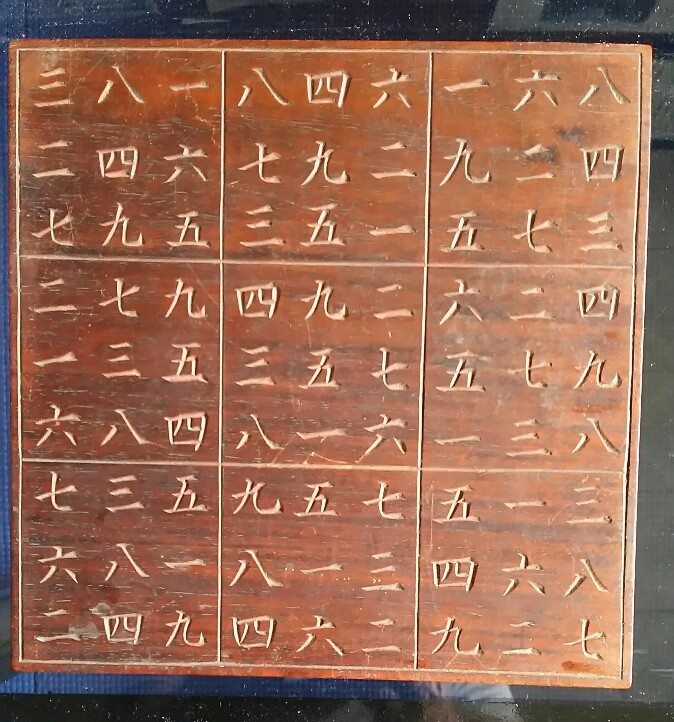 三八一八四六一六八
二四六七九二九二四
七九五三五一五七三
二七九四九二六二四
一三五三五七五七九
六八四八一六一三八
七三五九五七五一三
六八一八一三四六八
二四九四六二九二七